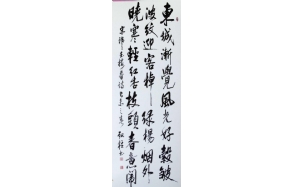 東城漸覺風光好縠皺
波紋迎客棹綠楊烟外
曉寒輕紅杏枝頭春意鬧